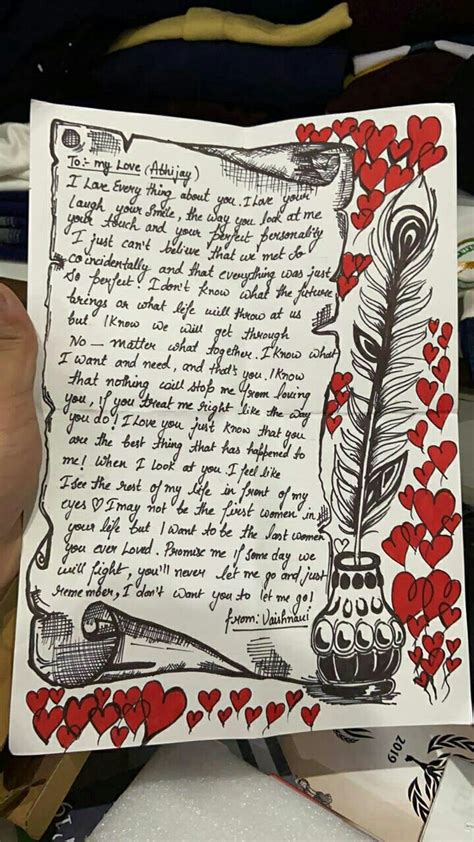 To:- my Love (Abhijay)
I Love Every thing about you. I Love your
laugh, your smile, the way you look at me
your touch and your perfect personality
I just can't believe that we met so
coincidentally and that everything was just
so perfect. I don't know what the future
brings or what life will throw at us
but I know we will get through
No — matter what together. I know what
I want and need, and that's you. I know
that nothing will stop me from loving
you, if you treat me right like the way
you do! I Love you just know that you
are the best thing that has happened to
me! When I look at you I feel like
I see the rest of my life in front of my
eyes ♡ I may not be the first women in
your life but I want to be the last women
you ever Loved. Promise me if some day we
will fight, you'll never let me go and just
remember, I don't want you to let me go!
from: Vaishnavi
2019